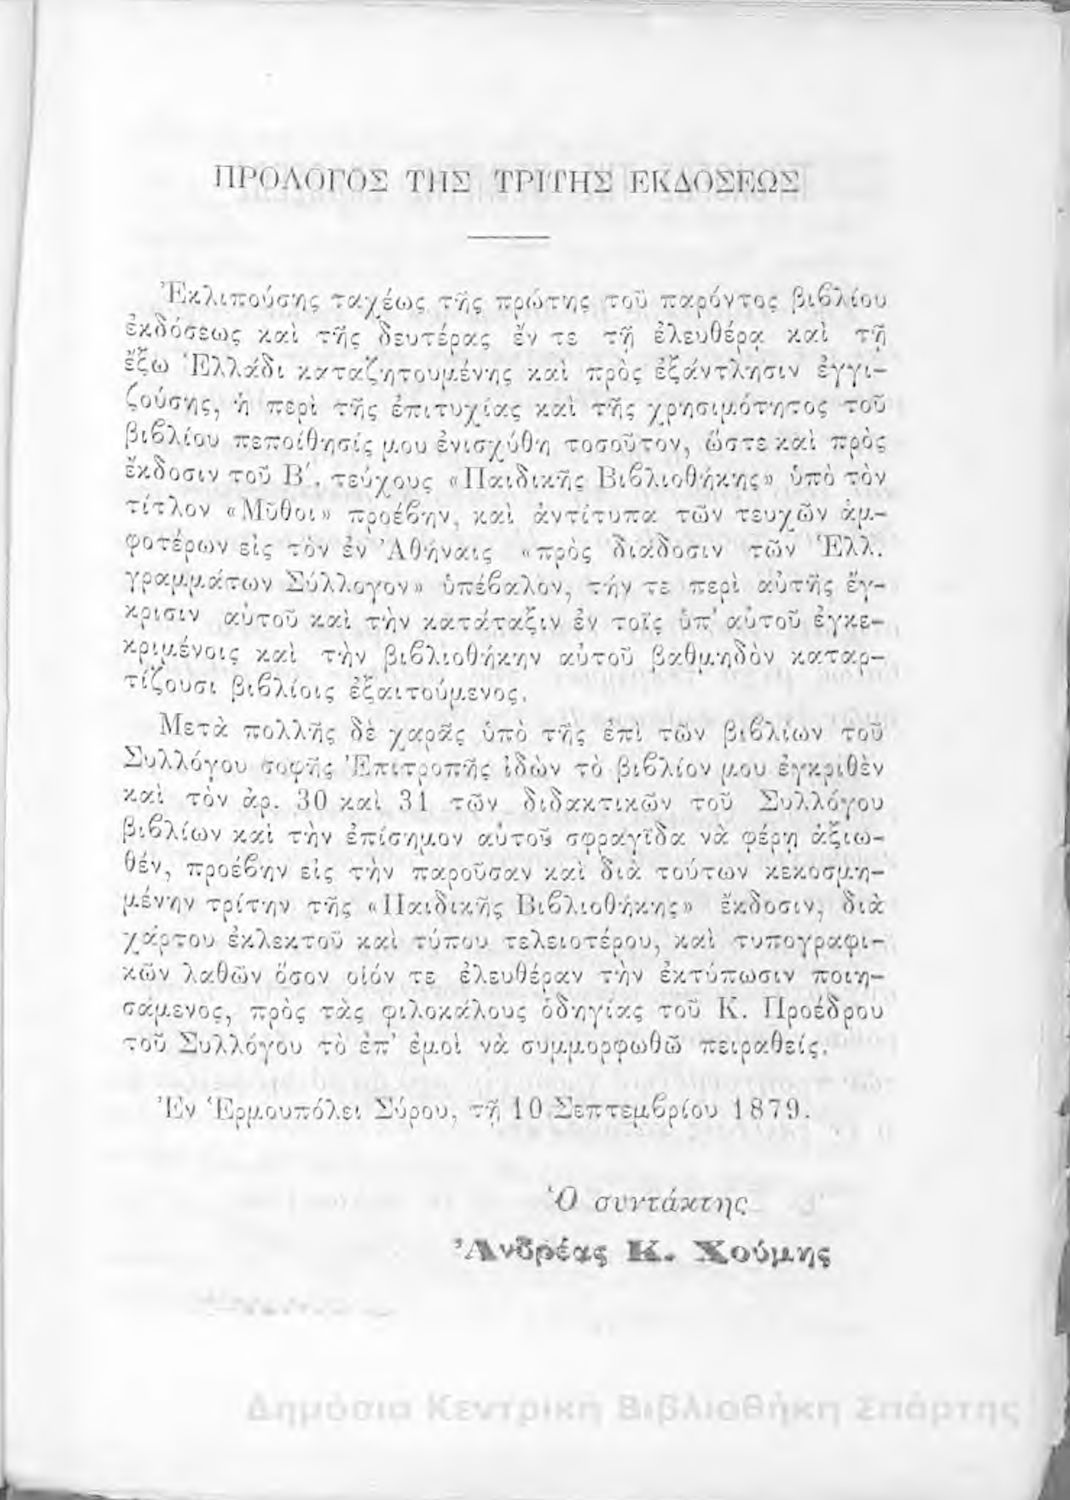 ΠΡΟΛΟΓΟΣ ΤΗΣ ΤΡΙΤΗΣ ΕΚΔΟΣΕΩΣ
Ἐκλιπούσης ταχέως τῆς πρώτης τοῦ παρόντος βιβλίου
ἐκδόσεως καὶ τῆς δευτέρας ἔν τε τῇ ἐλευθέρᾳ καὶ τῇ
ἔξω Ἑλλάδι καταζητουμένης καὶ πρὸς ἐξάντλησιν ἐγγι-
ζούσης, ἡ περὶ τῆς ἐπιτυχίας καὶ τῆς χρησιμότητος τοῦ
βιβλίου πεποίθησίς μου ἐνισχύθη τοσοῦτον, ὥστε καὶ πρὸς
ἔκδοσιν τοῦ Β΄. τεύχους «Παιδικῆς Βιβλιοθήκης» ὑπὸ τὸν
τίτλον «Μῦθοι» προέβην, καὶ ἀντίτυπα τῶν τευχῶν ἀμ-
φοτέρων εἰς τὸν ἐν Ἀθήναις «πρὸς διάδοσιν τῶν Ἑλλ.
γραμμάτων Σύλλογον» ὑπέβαλον, τήν τε περὶ αὐτῆς ἔγ-
κρισιν αὐτοῦ καὶ τὴν κατάταξιν ἐν τοῖς ὑπ' αὐτοῦ ἐγκε-
κριμένοις καὶ τὴν βιβλιοθήκην αὐτοῦ βαθμηδὸν καταρ-
τίζουσι βιβλίοις ἐξαιτούμενος.
Μετὰ πολλῆς δὲ χαρᾶς ὑπὸ τῆς ἐπὶ τῶν βιβλίων τοῦ
Συλλόγου σοφῆς Ἐπιτροπῆς ἰδὼν τὸ βιβλίον μου ἐγκριθὲν
καὶ τὸν ἀρ. 30 καὶ 31 τῶν διδακτικῶν τοῦ Συλλόγου
βιβλίων καὶ τὴν ἐπίσημον αὐτοῦ σφραγῖδα νὰ φέρῃ ἀξιω-
θέν, προέβην εἰς τὴν παροῦσαν καὶ διὰ τούτων κεκοσμη-
μένην τρίτην τῆς «Παιδικῆς Βιβλιοθήκης» ἔκδοσιν, διὰ
χάρτου ἐκλεκτοῦ καὶ τύπου τελειοτέρου, καὶ τυπογραφι-
κῶν λαθῶν ὅσον οἷόν τε ἐλευθέραν τὴν ἐκτύπωσιν ποιη-
σάμενος, πρὸς τὰς φιλοκάλους ὁδηγίας τοῦ Κ. Προέδρου
τοῦ Συλλόγου τὸ ἐπ' ἐμοὶ νὰ συμμορφωθῶ πειραθείς.
Ἐν Ἑρμουπόλει Σύρου, τῇ 10 Σεπτεμβρίου 1879.
Ὁ συντάκτης
Ἀνδρέας Κ. Χούμης
Δημόσια Κεντρική Βιβλιοθήκη Σπάρτης